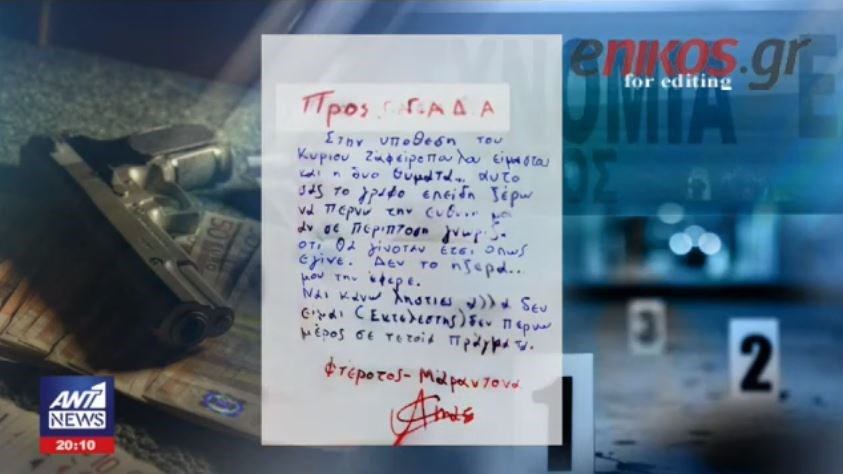 enikos.gr
for editing
ΥΝΟΜΙΑ Ε
ΟΣ
Προς Γ.Α.Δ.Α
Στην υποθεση του
Κυριου Ζαφειροπουλου ειμασται
και η δυο θυματα... αυτο
σας το γραφο επειδη ξέρω
να περνω την ευθυνη μου
αν σε περιπτοση γνωριζα
οτι θα γινοταν ετσι οπως
εγινε. Δεν το ηξερα...
μου την εφερε.
Ναι κανω Ληστιες αλλα δεν
ειμαι (Εκτελεστης) δεν περνω
μέρος σε τετοια πραγματα.
Φτεροτος - Μαραντονα
3
2
1
50
ANT1
NEWS
20:10